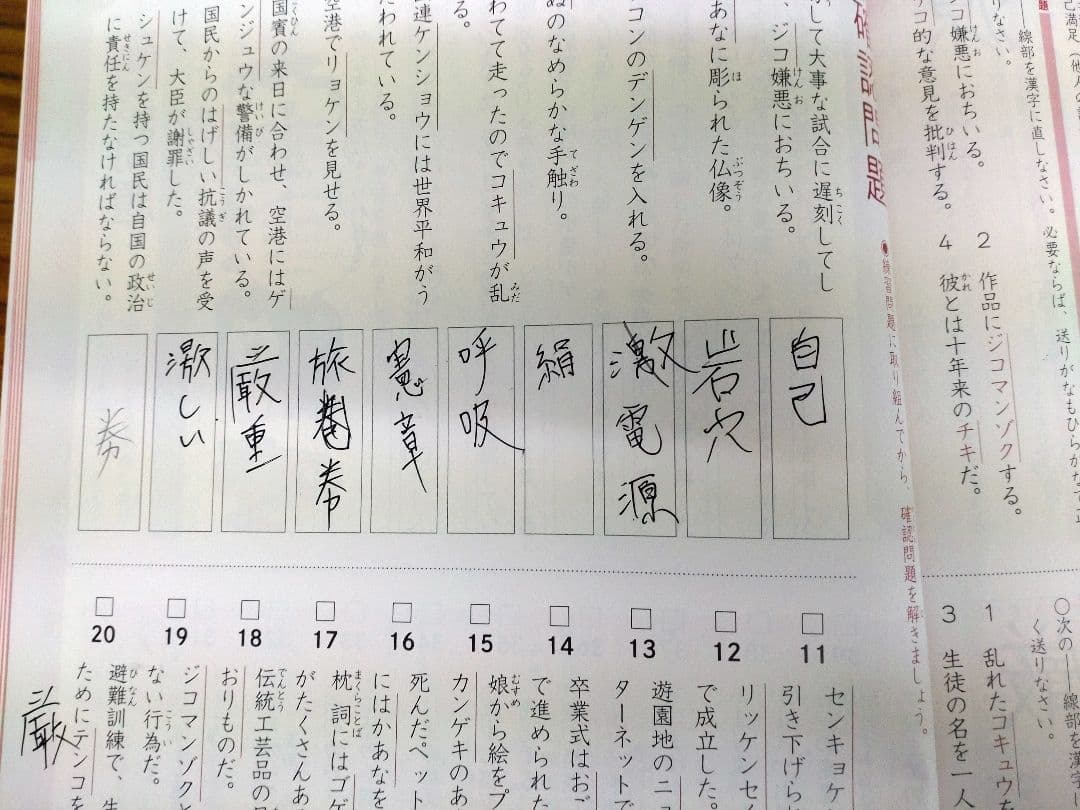 確認問題
●練習問題に取り組んでから、確認問題を解きましょう。
線部を漢字に直しなさい。必要ならば、送りがなもひらがなで
りなさい。
ジコ嫌悪におちいる。
けんお
コ的な意見を批判する。
ひはん
2 作品にジコマンゾクする。
4 彼とは十年来のチキだ。
かれ
○次の――線部を漢字
く送りなさい。
1 乱れたコキュウ
3 生徒の名を一人
して大事な試合に遅刻してし
ちこく
、ジコ嫌悪におちいる。
けんお
自己
あなに彫られた仏像。
ほ
ぶつぞう
岩穴
コンのデンゲンを入れる。
電源
ぬのなめらかな手触り。
てざわ
絹
わてて走ったのでコキュウが乱
みだ
る。
呼吸
連ケンショウには世界平和がう
たわれている。
憲章
空港でリョケンを見せる。
旅券
国賓の来日に合わせ、空港にはゲ
こくひん
ンジュウな警備がしかれている。
けいび
厳重
国民からのはげしい抗議の声を受
こうぎ
けて、大臣が謝罪した。
しゃざい
激しい
シュケンを持つ国民は自国の政治
せいじ
に責任を持たなければならない。
せきにん
券
11
センキョ
引き下げら
12
リッケンセイ
で成立した。
13
遊園地のニュ
ターネットで
14
卒業式はおご
で進められた
15
娘から絵をプ
むすめ
カンゲキのあ
16
死んだペット
にはかあなを
17
枕詞にはゴゲ
まくらことば
がたくさんあ
18
伝統工芸品の
でんとう
おりものだ。
19
ジコマンゾクと
ない行為だ。
こうい
20
避難訓練で、生
ひなん
ためにテンコを
厳